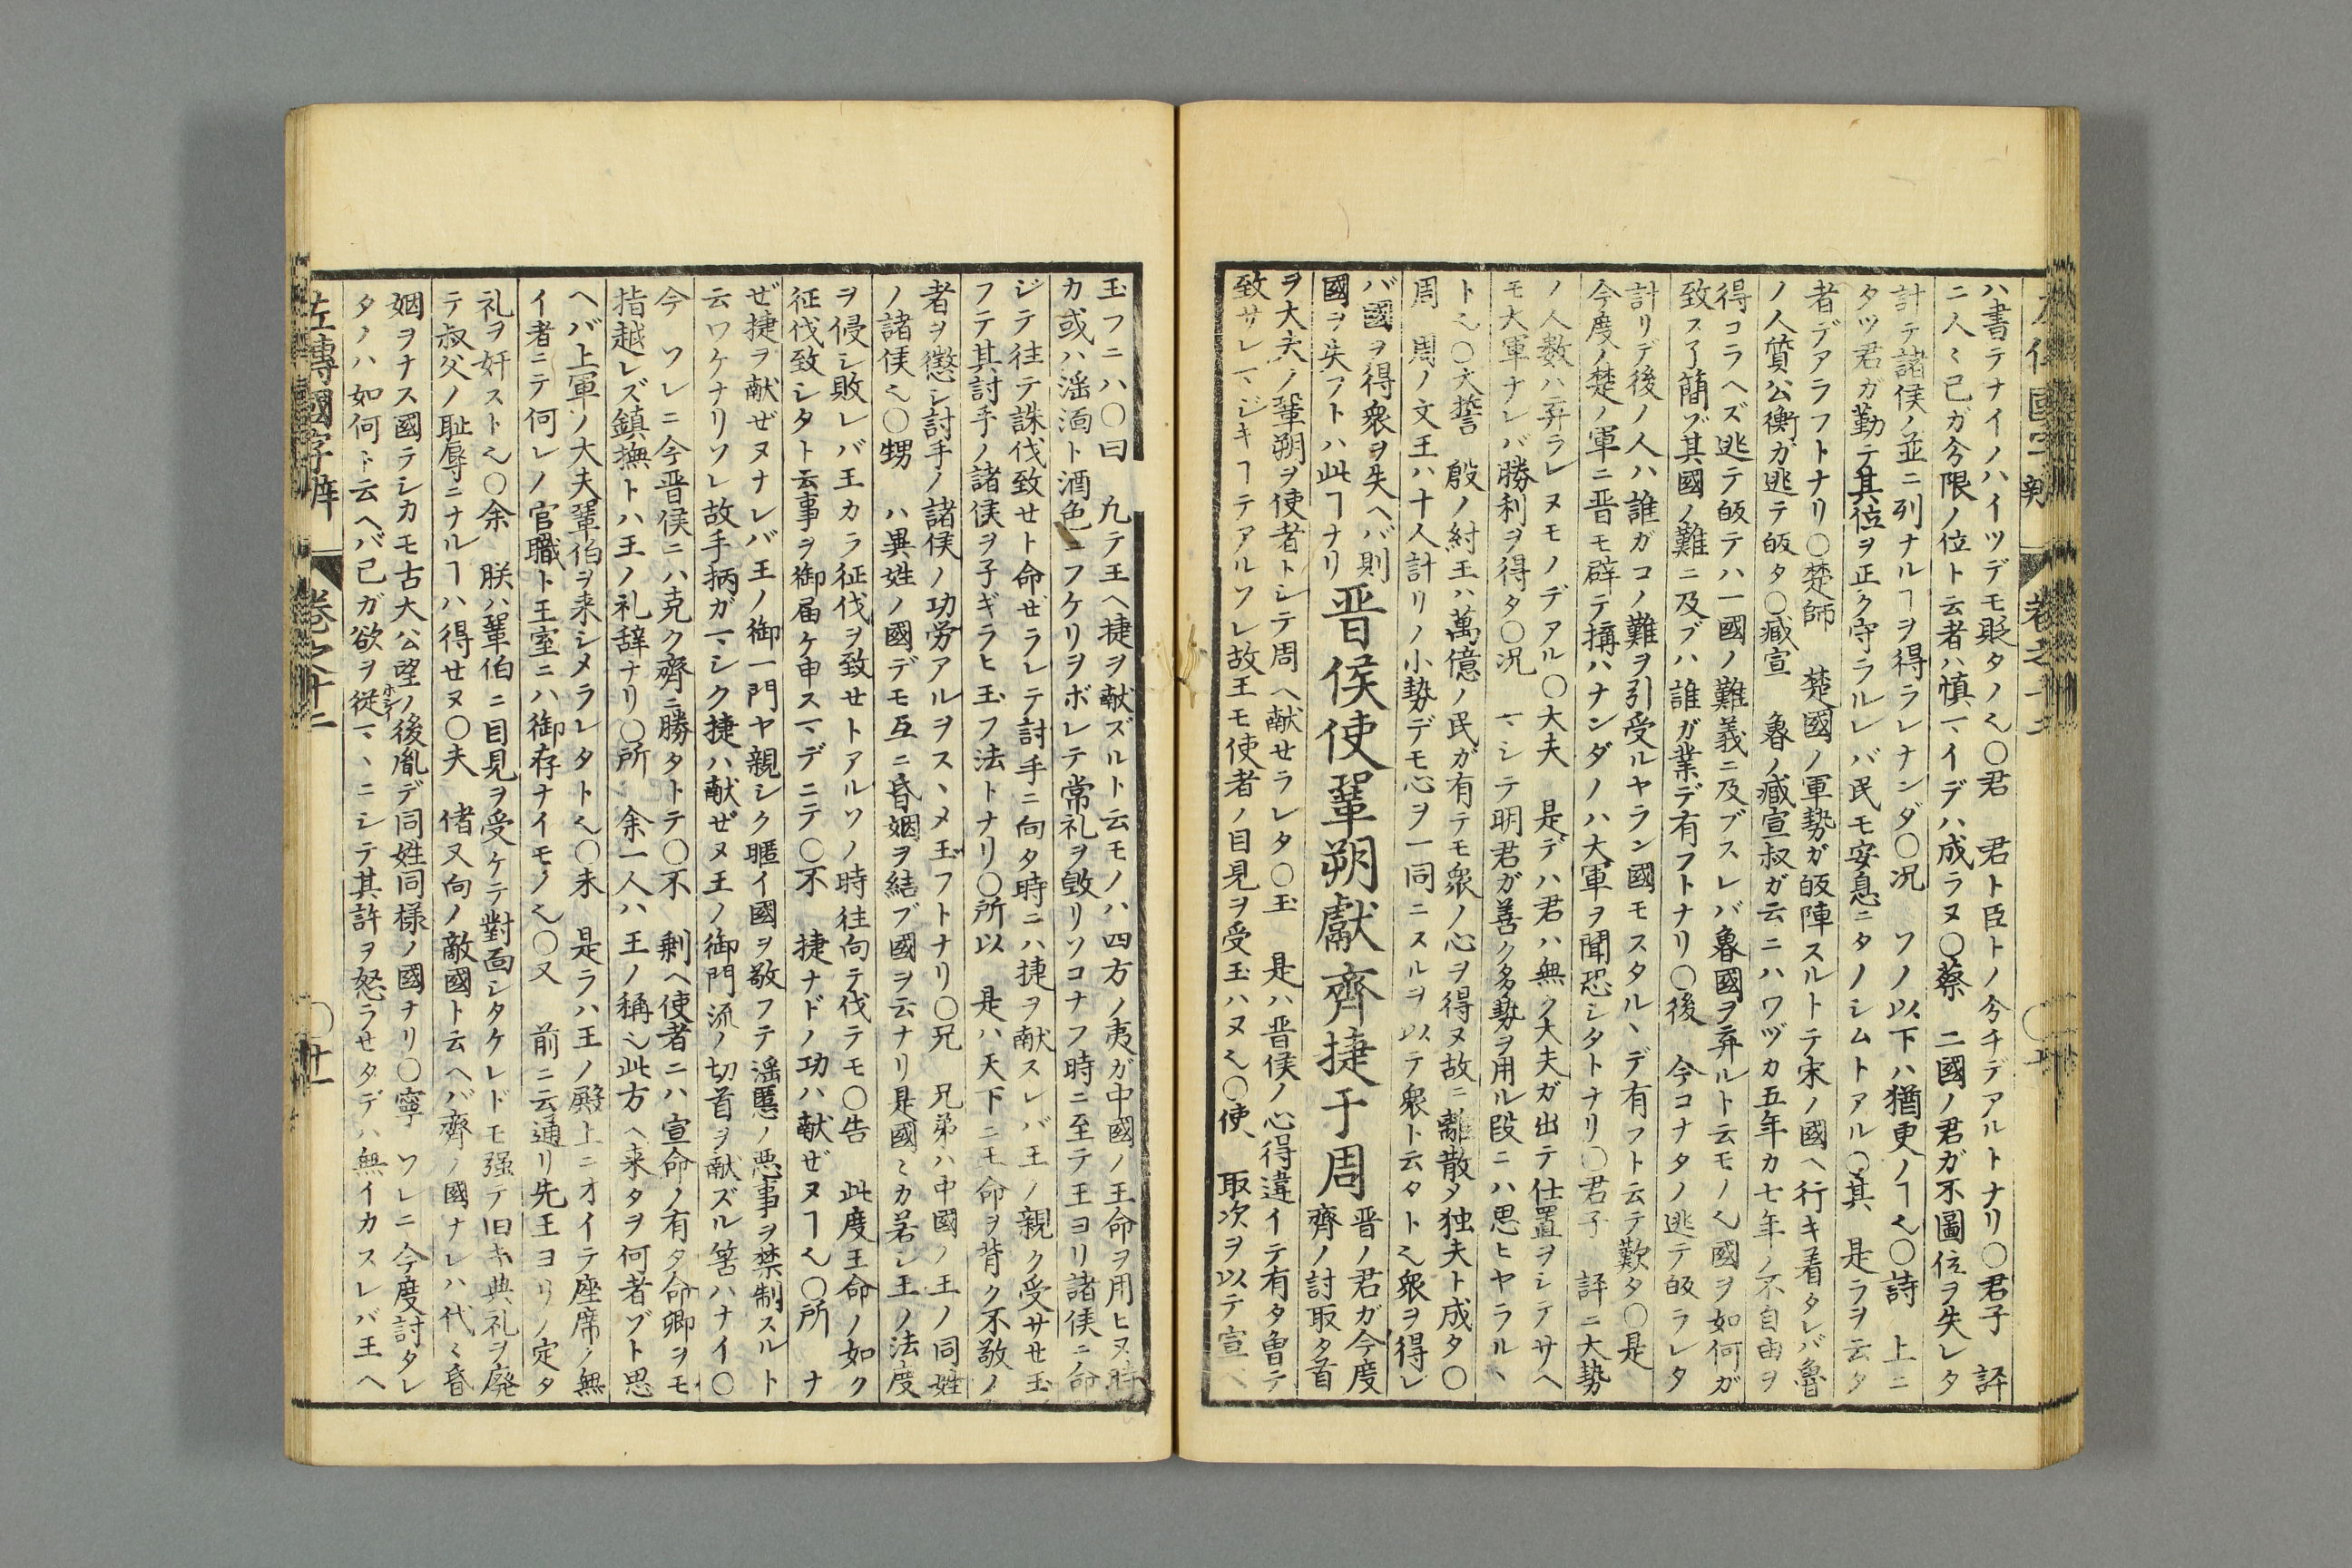 ハ書テナイノハイツデモ貶タノ也〇君　君ト臣トノ分チデアルトナリ〇君子　評
ニ人々己ガ分限ノ位ト云者ハ慎マイデハ成ラヌ〇蔡　二國ノ君ガ不圖位ヲ失レタ
計テ諸侯ノ並ニ列ナルヿヲ得ラレナンダ〇况　ソノ以下ハ猶更ノヿ也〇詩　上ニ
タツ君ガ勤テ其位ヲ正ク守ラルレバ民モ安息ニタノシムトアル〇其　是ラヲ云タ
者デアラフトナリ〇楚師　楚國ノ軍勢ガ皈陣スルトテ宋ノ國ヘ行キ着タレバ魯
ノ人質公衡ガ逃テ皈タ〇臧宣　魯ノ臧宣叔ガ云ニハワヅカ五年カ七年ノ不自由ヲ
得コラヘズ逃テ皈テハ一國ノ難義ニ及ブスレバ魯國ヲ弃ルト云モノ也國ヲ如何ガ
致ス了簡ゾ其國ノ難ニ及ブハ誰ガ業デ有フトナリ〇後　今コナタノ逃テ皈ラレタ
計リデ後ノ人ハ誰ガコノ難ヲ引受ルヤラン國モスタルヽデ有フト云テ歎タ〇是
今度ノ楚ノ軍ニ晋モ辟テ搆ハナンダノハ大軍ヲ聞恐シタトナリ〇君子　評ニ大勢
ノ人数ハ弃ラレヌモノデアル〇大夫　是デハ君ハ無ク大夫ガ出テ仕置ヲシテサヘ
モ大軍ナレバ勝利ヲ得タ〇况　マシテ明君ガ善ク多勢ヲ用ル段ニハ思ヒヤラルヽ
ト也〇大誓　殷ノ紂王ハ萬億ノ民ガ有テモ衆ノ心ヲ得ヌ故ニ離散〆独夫ト成タ〇
周　周ノ文王ハ十人計リノ小勢デモ心ヲ一同ニスルヲ以テ衆ト云タト也衆ヲ得レ
バ國ヲ得衆ヲ失ヘバ則
國ヲ失フトハ此ヿナリ
晋侯使鞏朔獻齊捷于周
晋ノ君ガ今度
齊ノ討取タ首
ヲ大夫ノ鞏朔ヲ使者トシテ周ヘ献セラレタ〇王　是ハ晋侯ノ心得違イテ有タ曹テ
致サレマジキヿテアルソレ故王モ使者ノ目見ヲ受玉ハヌ也〇使　取次ヲ以テ宣ヘ
玉フニハ〇曰　凢テ王ヘ捷ヲ献ズルト云モノハ四方ノ夷ガ中國ノ王命ヲ用ヒヌ
カ或ハ滛湎ト酒色ニフケリヲボレテ常礼ヲ毀リソコナフ時ニ至テ王ヨリ諸侯ニ命
ジテ往テ誅伐致セト命ゼラレテ討手ニ向タ時ニハ捷ヲ献スレバ王ノ親ク受サセ玉
フテ其討手ノ諸侯ヲ子ギラヒ玉フ法トナリ〇所以　是ハ天下ニモ命ヲ背ク不敬ノ
者ヲ懲シ討手ノ諸侯ノ功労アルヲスヽメ玉フトナリ〇兄　兄弟ハ中國ノ王ノ同姓
ノ諸侯也〇甥　ハ異姓ノ國デモ互ニ昏姻ヲ結ブ國ヲ云ナリ是國々カ若シ王ノ法度
ヲ侵シ敗レバ王カラ征伐ヲ致セトアルソノ時往向テ伐テモ〇告　此度王命ノ如ク
征伐致シタト云事ヲ御届ケ申スマデニテ〇不　捷ナドノ功ハ献ゼヌヿ也〇所　ナ
ゼ捷ヲ献ゼヌナレバ王ノ御一門ヤ親シク暱イ國ヲ敬フテ滛慝ノ悪事ヲ禁制スルト
云ワケナリソレ故手柄ガマシク捷ハ献ゼヌ王ノ御門流ノ切首ヲ献ズル筈ハナイ〇
今　ソレニ今晋侯ニハ克ク齊ニ勝タトテ〇不　剰ヘ使者ニハ宣命ノ有タ命卿ヲモ
指越レズ鎮撫トハ王ノ礼辞ナリ〇所　余一人ハ王ノ稱也此方ヘ来タヲ何者ゾト思
ヘバ上軍ノ大夫鞏伯ヲ来シメラレタト也〇未　是ラハ王ノ殿上ニオイテ座席ノ無
イ者ニテ何レノ官職ト王室ニハ御存ナイモノ也〇又　前ニ云通リ先王ヨリノ定タ
礼ヲ奸スト也〇余　朕ハ鞏伯ニ目見ヲ受ケテ對面シタケレドモ强テ旧キ典礼ヲ廃
テ叔父ノ耻辱ニナルヿハ得せヌ〇夫　偖又向ノ敵國ト云ヘバ齊ノ國ナレハ代々昏
姻ヲナス國テシカモ古大公望ノ後胤デ同姓同様ノ國ナリ〇寧　ソレニ今度討タレ
タノハ如何ト云ヘバ己ガ欲ヲ従マヽニシテ其許ヲ怒ラセタデハ無イカスレバ王ヘ
左傳國字辯　卷之十二　〇廿一